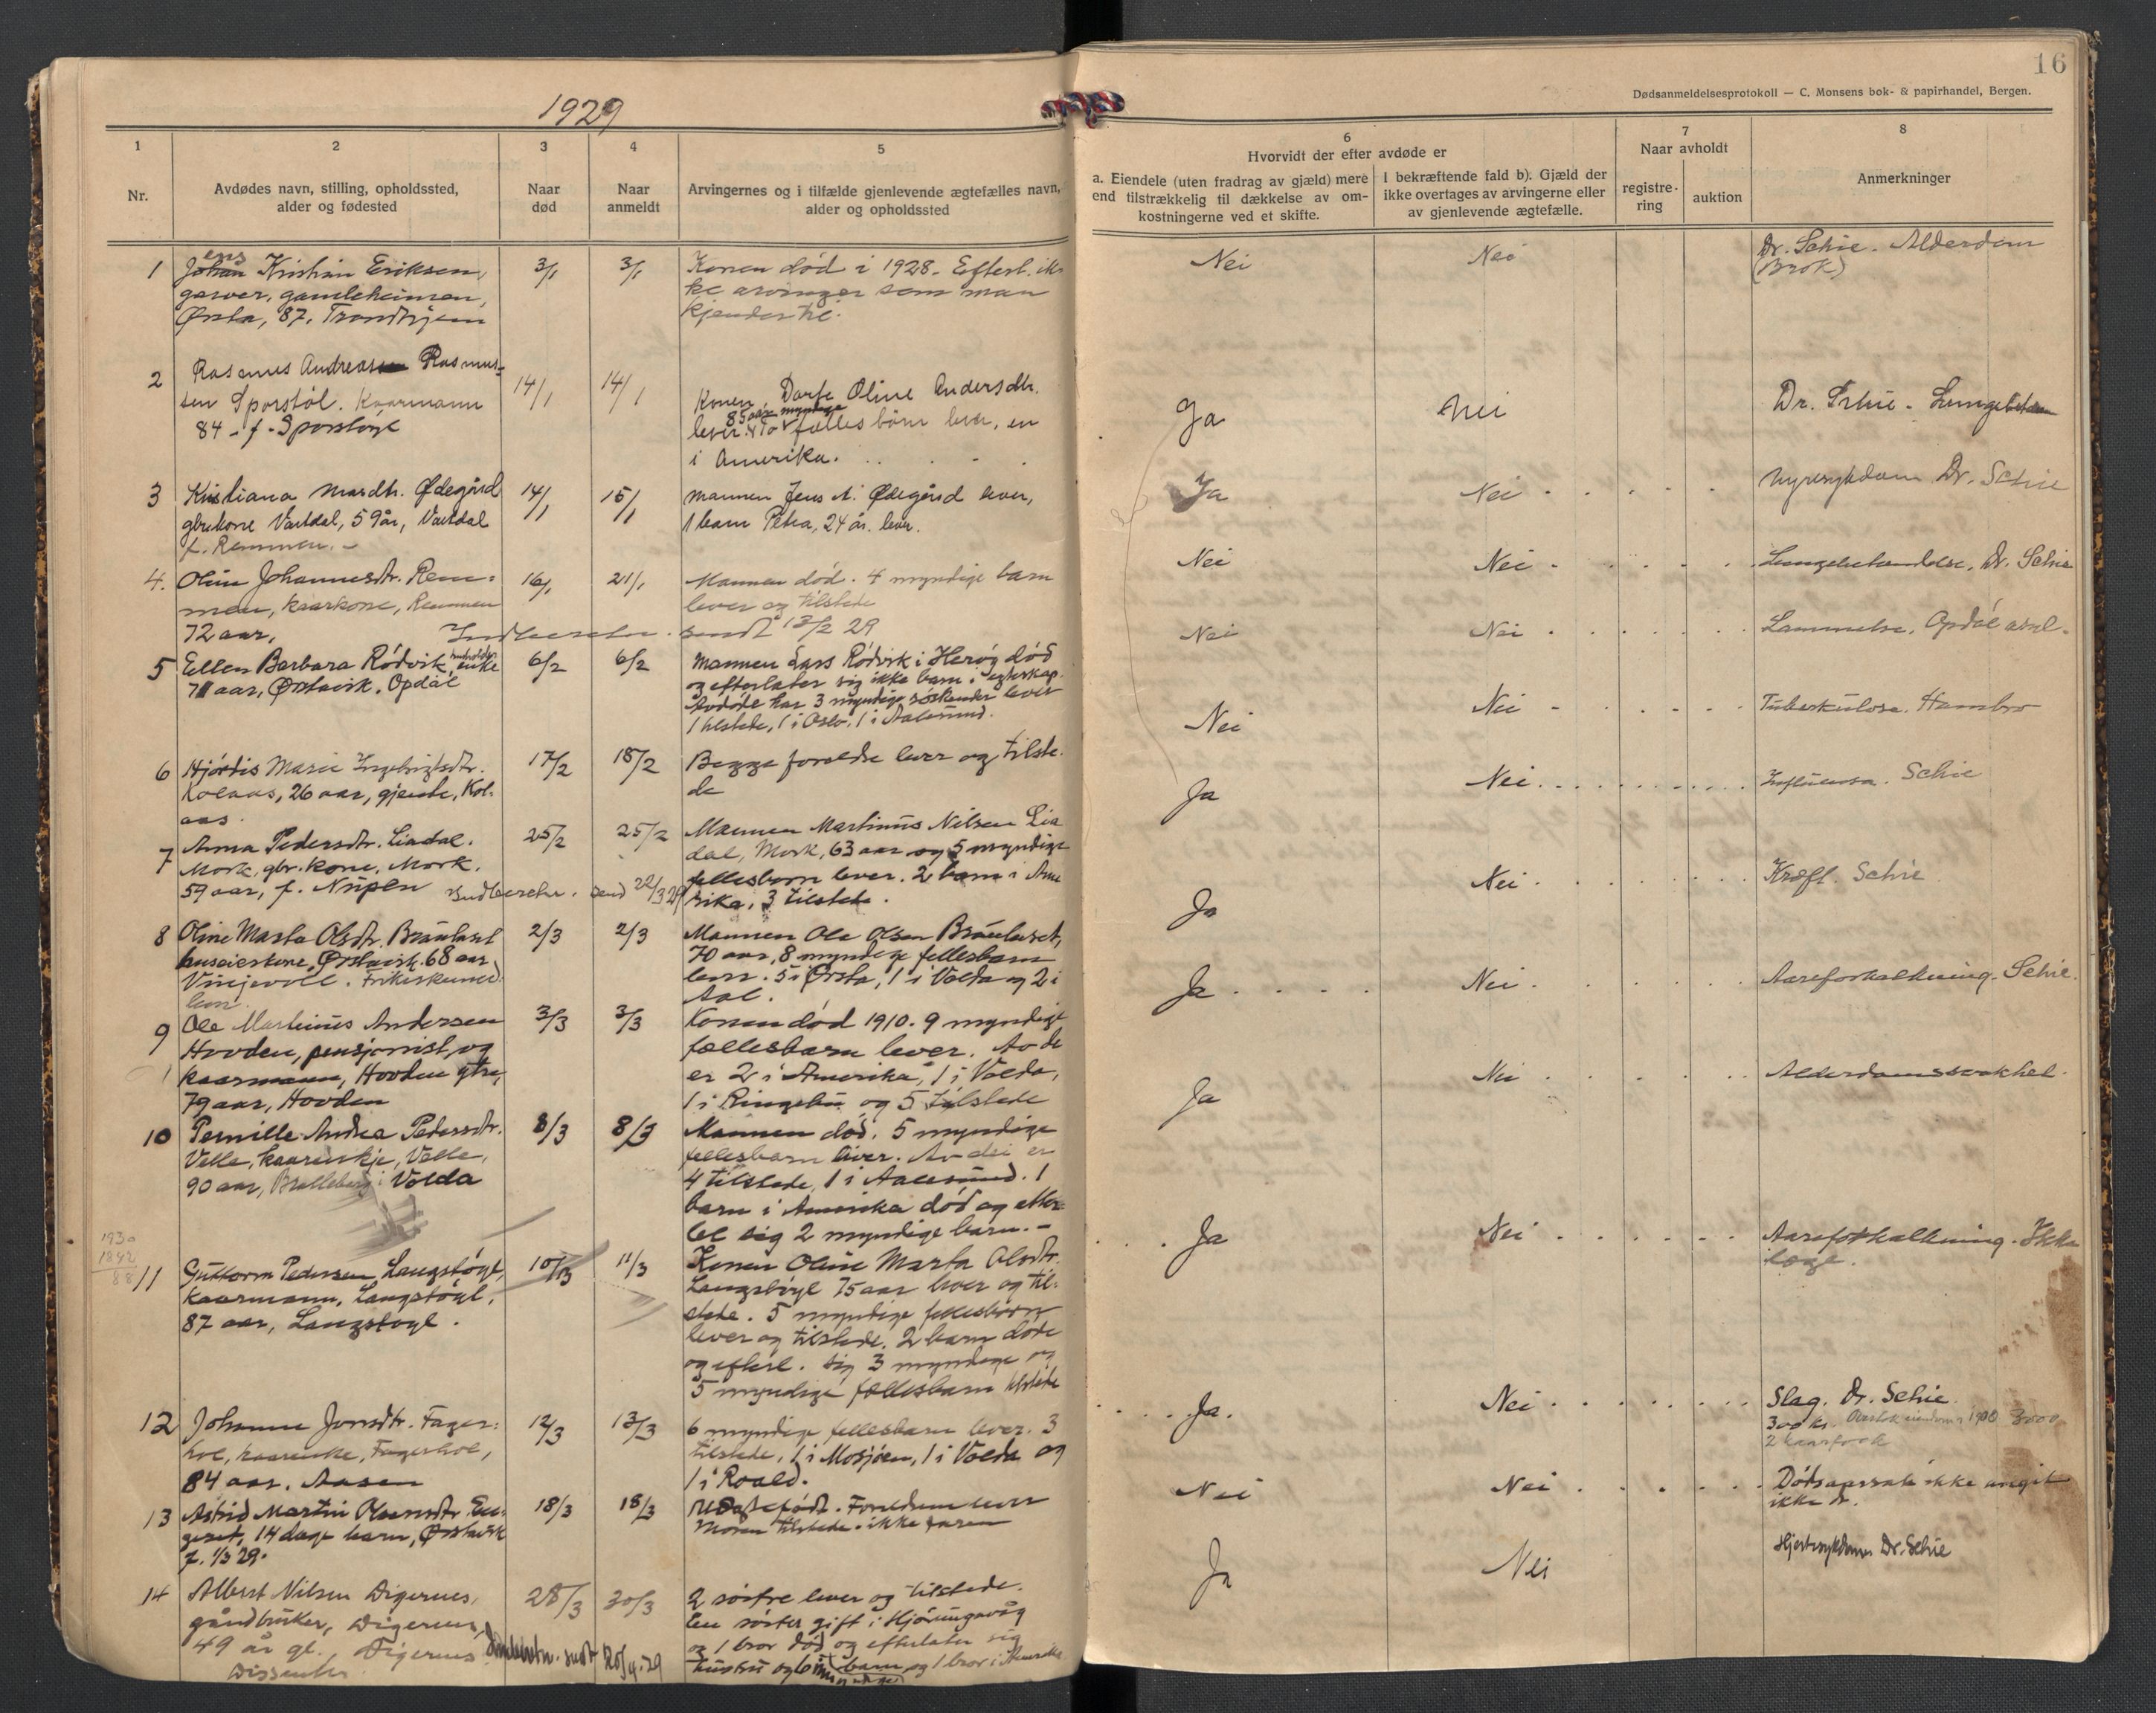 16
1929
Dødsanmeldelsesprotokoll — C. Monsens bok- & papirhandel, Bergen.
1
2
3
4
5
6
7
8
Nr.
Avdødes navn, stilling, opholdssted,
alder og fødested
Naar
død
Naar
anmeldt
Arvingernes og i tilfælde gjenlevende ægtefælles navn,
alder og opholdssted
Hvorvidt der efter avdøde er
a. Eiendele (uten fradrag av gjæld) mere
end tilstrækkelig til dækkelse av om-
kostningerne ved et skifte.
I bekræftende fald b). Gjæld der
ikke overtages av arvingerne eller
av gjenlevende ægtefælle.
Naar avholdt
registre-
ring
auktion
Anmerkninger
1 Johan Kristian Eriksen, 3/1 3/1 Konen død i 1928. Efterl. ik- Nei Nei Dr. Schie. Alderdom
ens
garver, gamleheimen, ke arvinger som man (Brok)
Ørsta, 87. Trondhjem kjender til.
2 Rasmus Andreassen Rasmus- 14/1 14/1 Konen, Dorte Oline Andersdtr. Ja Nei Dr. Schie -
sen Sporstøl. Kaarmann 85 aar
84 - f. Sporstøyl lever. To fælles børn lever, en
i Amerika.
3 Kristiana Mardtr. Ødegård 14/1 15/1 Mannen Jens A. Ødegård lever, Ja Nei Nyresykdom Dr. Schie
gbrkone Vartdal, 59 år, Vartdal 1 barn Petra, 24 år. lever.
f. Remmen. -
4. Oline Johannesdtr. Rem- 16/1 21/1 Mannen død. 4 myndige barn Nei Nei Lungebetendelse. Dr. Schie
men, kaarkone, Remmen lever og tilstede
72 aar, Indberetn. sendt 13/2 29
5 Ellen Barbara Rødvik, enke 6/2 6/2 Mannen Lars Rødvik i Herøy død Nei Nei Lammelse. Opdøl asyl.
71 aar, Ørstavik. Opdal og efterlater sig ikke barn i egteskap.
Avdøde har 3 myndige søskender lever
1 tilstede, 1 i Oslo, 1 i Aalesund.
6 Hjørdis Marie Ingebrigtsdtr. 17/2 18/2 Begge foreldre lever og tilste- Nei Nei Tuberkulose. Hambro
Kolaas, 26 aar, gjente, Kol- de
aas.
7 Anna Pedersdtr. Liadal. 25/2 25/2 Mannen Martinus Nilsen Lia Ja Nei Influensa. Schie
Mork, gbr. kone, Mork. dal, Mork, 63 aar og 5 myndige
59 aar, f. Nupen fellesbarn lever. 2 barn i Ame
Indberetn. send 22/3 29 rika, 3 tilstede.
8 Oline Marta Olsdtr. Brautaset 2/3 2/3 Mannen Ole Olsen Brautaset, Ja Nei Kræft. Schie
huseierkone, Ørstavik. 68 aar 70 aar, 8 myndige fellesbarn
Vinjevoll. lever. 5 i Ørsta, 1 i Volda og 2 i
Aal.
9 Ole Martinus Andersen 3/3 3/3 Konen død 1910. 9 myndige Ja Nei Aareforkalkning. Schie.
Hovden, pensjonist og fællesbarn lever. Av de
kaarmann, Hovden Ørsta, er 2 i Amerika, 1 i Volda,
79 aar, Hovden 1 i Ringebu og 5 tilstede
10 Pernille Andrea Pedersdtr. 8/3 8/3 Mannen død. 5 myndige Ja Nei Alderdomssvakhet.
Velle, kaarenkje, Velle, fellesbarn liver. Av dei er
90 aar, i Volda 4 tilstede, 1 i Aalesund. 1
barn i Amerika død og etter-
let sig 2 myndige barn. -
1930
1842
88
11 Guttorm Pedersen Langstøyl, 10/3 11/3 Konen Oline Marta Olsdtr. Ja Nei Aareforkalkning. Ikke
kaarmann, Langstøyl, Langstøyl 75 aar lever og til- læge.
87 aar, Langstøyl. stede. 5 myndige fellesbørn
lever og tilstede. 2 barn døde
og efterl. sig 3 myndige og
5 myndige fællesbarn tilstede
12 Johanne Jonsdtr. Fager- 12/3 13/3 6 myndige fellesbarn lever. 3 Ja. Nei Slag. Dr. Schie.
hol, kaarenke, Fagerhol, tilstede, 1 i Mosjøen, 1 i Volda og 300 kr. 3000
84 aar. Aasen 1 i Roald. 2 kaarfook
13 Astrid Martin Olsensdtr. 18/3 18/3 Foreldrene lever Nei Nei Dødsaarsak ikke angit
14 dage barn, Ørstavik Moren tilstede. ikke faren ikke dr.
f. 1/3 29.
14 Albert Nilsen Digernes, 28/3 30/3 2 søstre lever og tilstede. Ja Nei Hjertesykdom Dr. Schie
gårdbruker, Digernes, En søster gift i Hjørungavåg
49 år gl. Digernes og 1 bror død og efterlater sig
Dissenter Indberetn. sendt 20/4 29 hustru og barn og 1 bror i Amerika